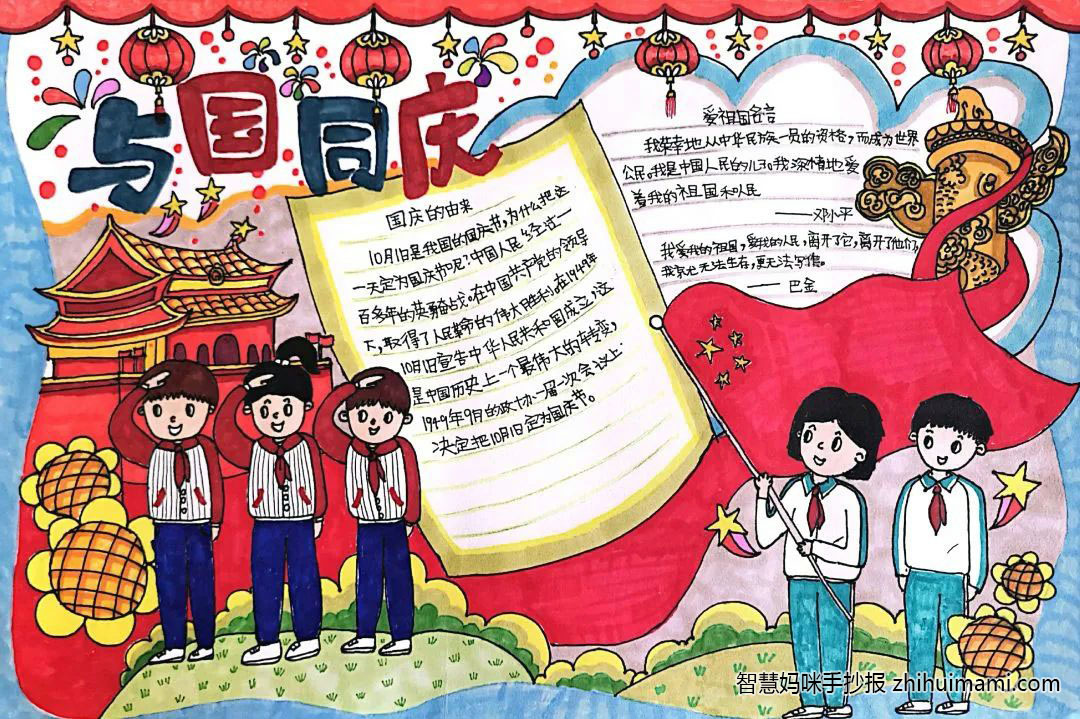 与国同庆
国庆的由来
10月1日是我国的国庆节,为什么把这
一天定为国庆节呢?中国人民经过一
百多年的英勇奋战。在中国共产党的领导
下,取得了人民革命的伟大胜利。在1949年
10月1日宣告中华人民共和国成立,这
是中国历史上一个最伟大的转变,
1949年9月的政协一届一次会议上:
决定把10月1日定为国庆节。
爱祖国名言
我荣幸地从中华民族一员的资格,而成为世界
公民。我是中国人民的儿子。我深情地爱
着我的祖国和人民
——邓小平
我爱我的祖国,爱我的人民,离开了它,离开了他们,
我就无法生存,更无法写作。
——巴金
智慧妈咪手抄报 zhihuimami.com